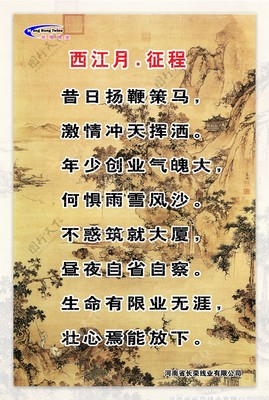 西江月.征程
昔日扬鞭策马，
激情冲天挥洒。
年少创业气魄大，
何惧雨雪风沙。
不惑筑就大厦，
昼夜自省自察。
生命有限业无涯，
壮心焉能放下。
河南省长荣线业有限公司